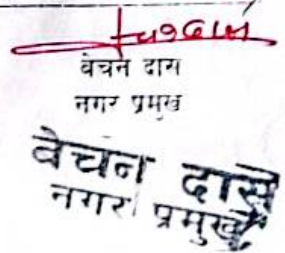 वेचन दास
नगर प्रमुख
वेचन दास
नगर प्रमुख